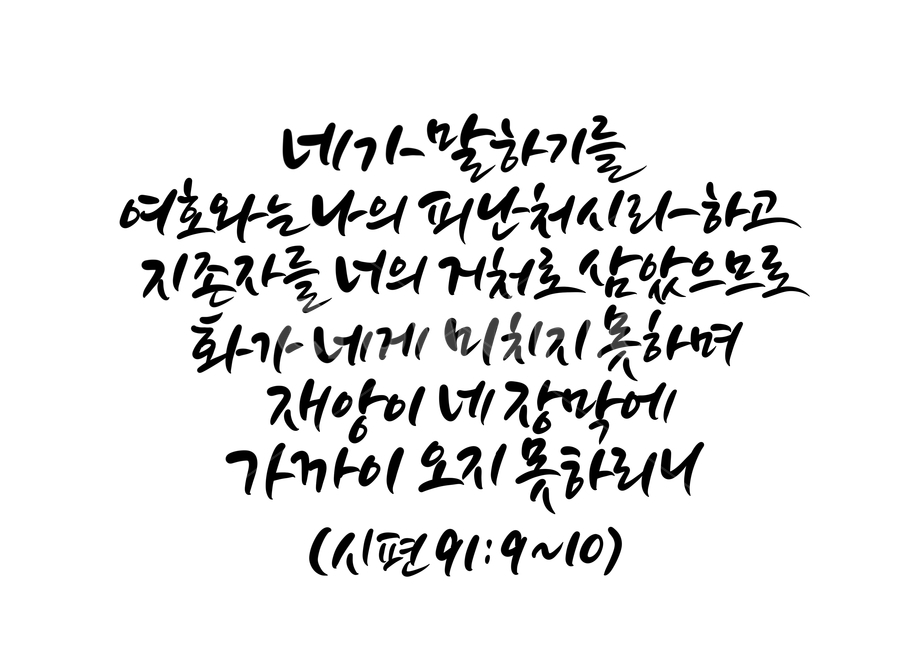 네가 말하기를
여호와는 나의 피난처시라 하고
지존자를 너의 거처로 삼았으므로
화가 네게 미치지 못하며
재앙이 네 장막에
가까이 오지 못하리니
(시편 91:9~10)